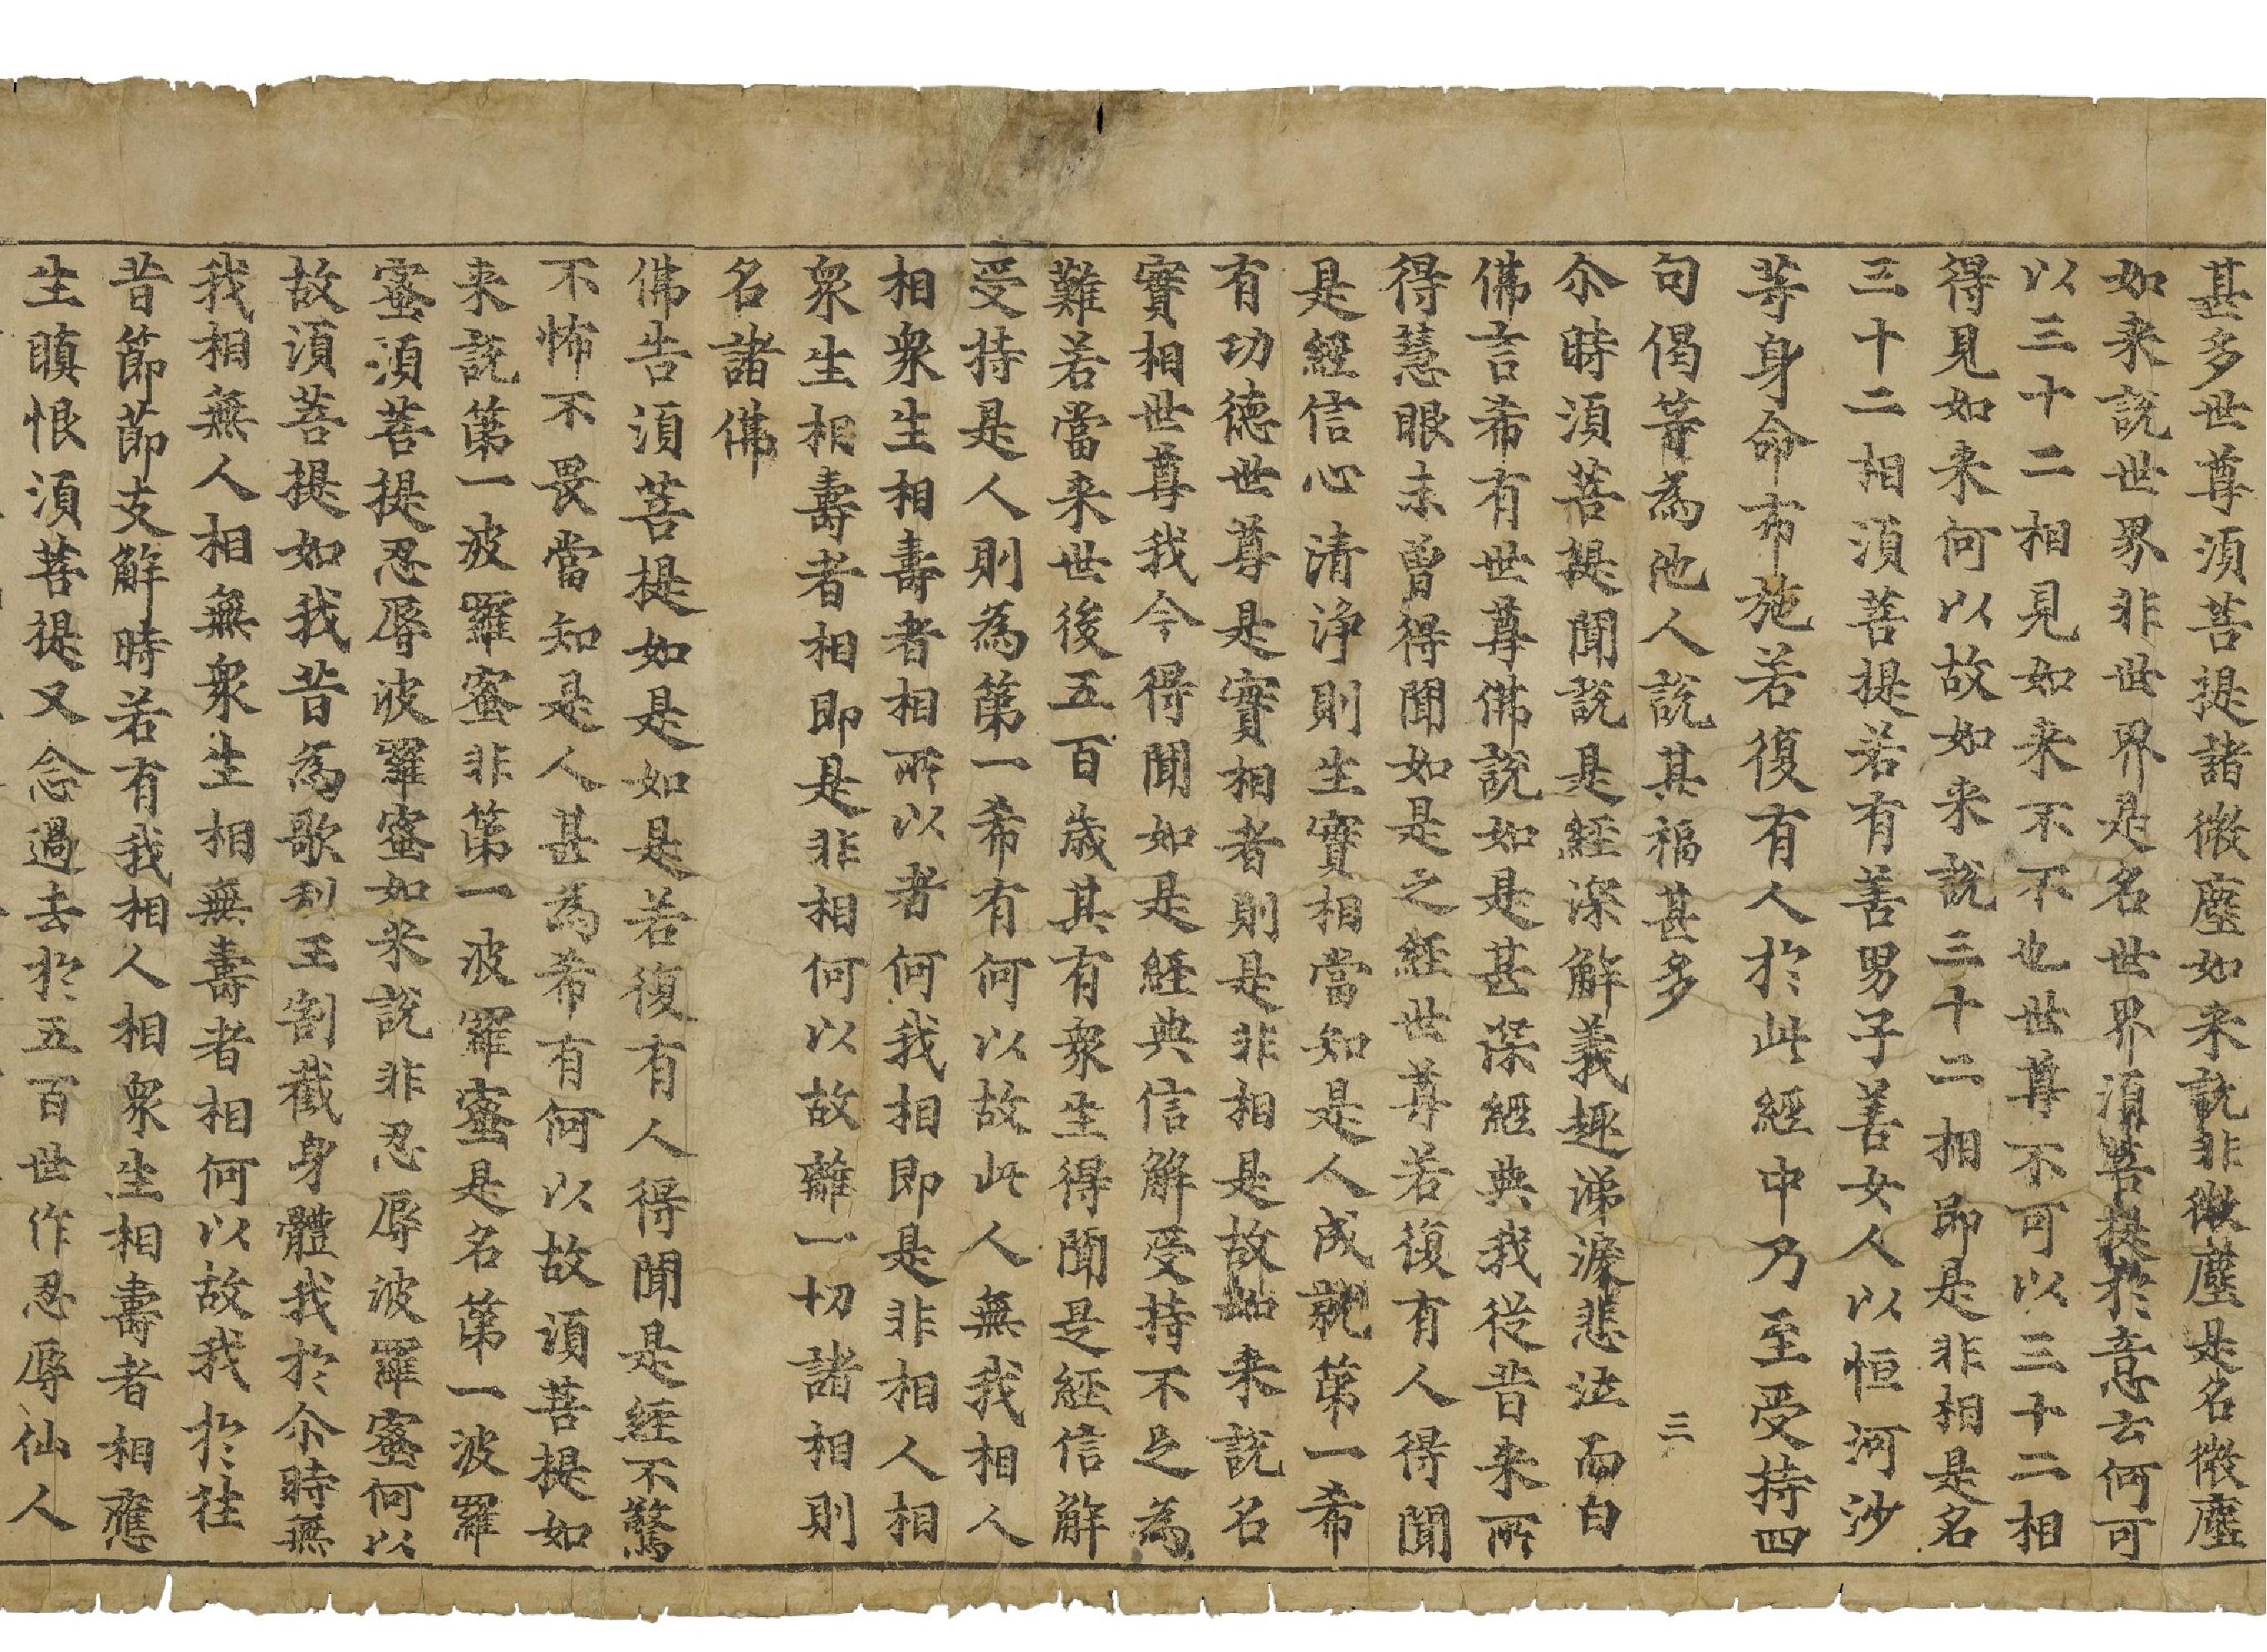 甚多世尊須菩提諸微塵如来說非微塵是名微塵
如来說世界非世界是名世界須菩提於意云何可
以三十二相見如来不不也世尊不可以三十二相
得見如来何以故如来說三十二相即是非相是名
三十二相須菩提若有善男子善女人以恒河沙
等身命布施若復有人於此經中乃至受持四
句偈等為他人說其福甚多
三
尒時須菩提聞說是經深解義趣涕淚悲泣而白
佛言希有世尊佛說如是甚深經典我從昔来所
得慧眼未曾得聞如是之經世尊若復有人得聞
是經信心清淨則生實相當知是人成就第一希
有功德世尊是實相者則是非相是故如来說名
實相世尊我今得聞如是經典信解受持不足為
難若當来世後五百歲其有衆生得聞是經信解
受持是人則為第一希有何以故此人無我相人
相衆生相壽者相所以者何我相即是非相人相
衆生相壽者相即是非相何以故離一切諸相則
名諸佛
佛告須菩提如是如是若復有人得聞是經不驚
不怖不畏當知是人甚為希有何以故須菩提如
来說第一波羅蜜非第一波羅蜜是名第一波羅
蜜須菩提忍辱波羅蜜如来說非忍辱波羅蜜何以
故須菩提如我昔為歌利王割截身體我於尒時無
我相無人相無衆生相無壽者相何以故我於往
昔節節支解時若有我相人相衆生相壽者相應
生瞋恨須菩提又念過去於五百世作忍辱仙人